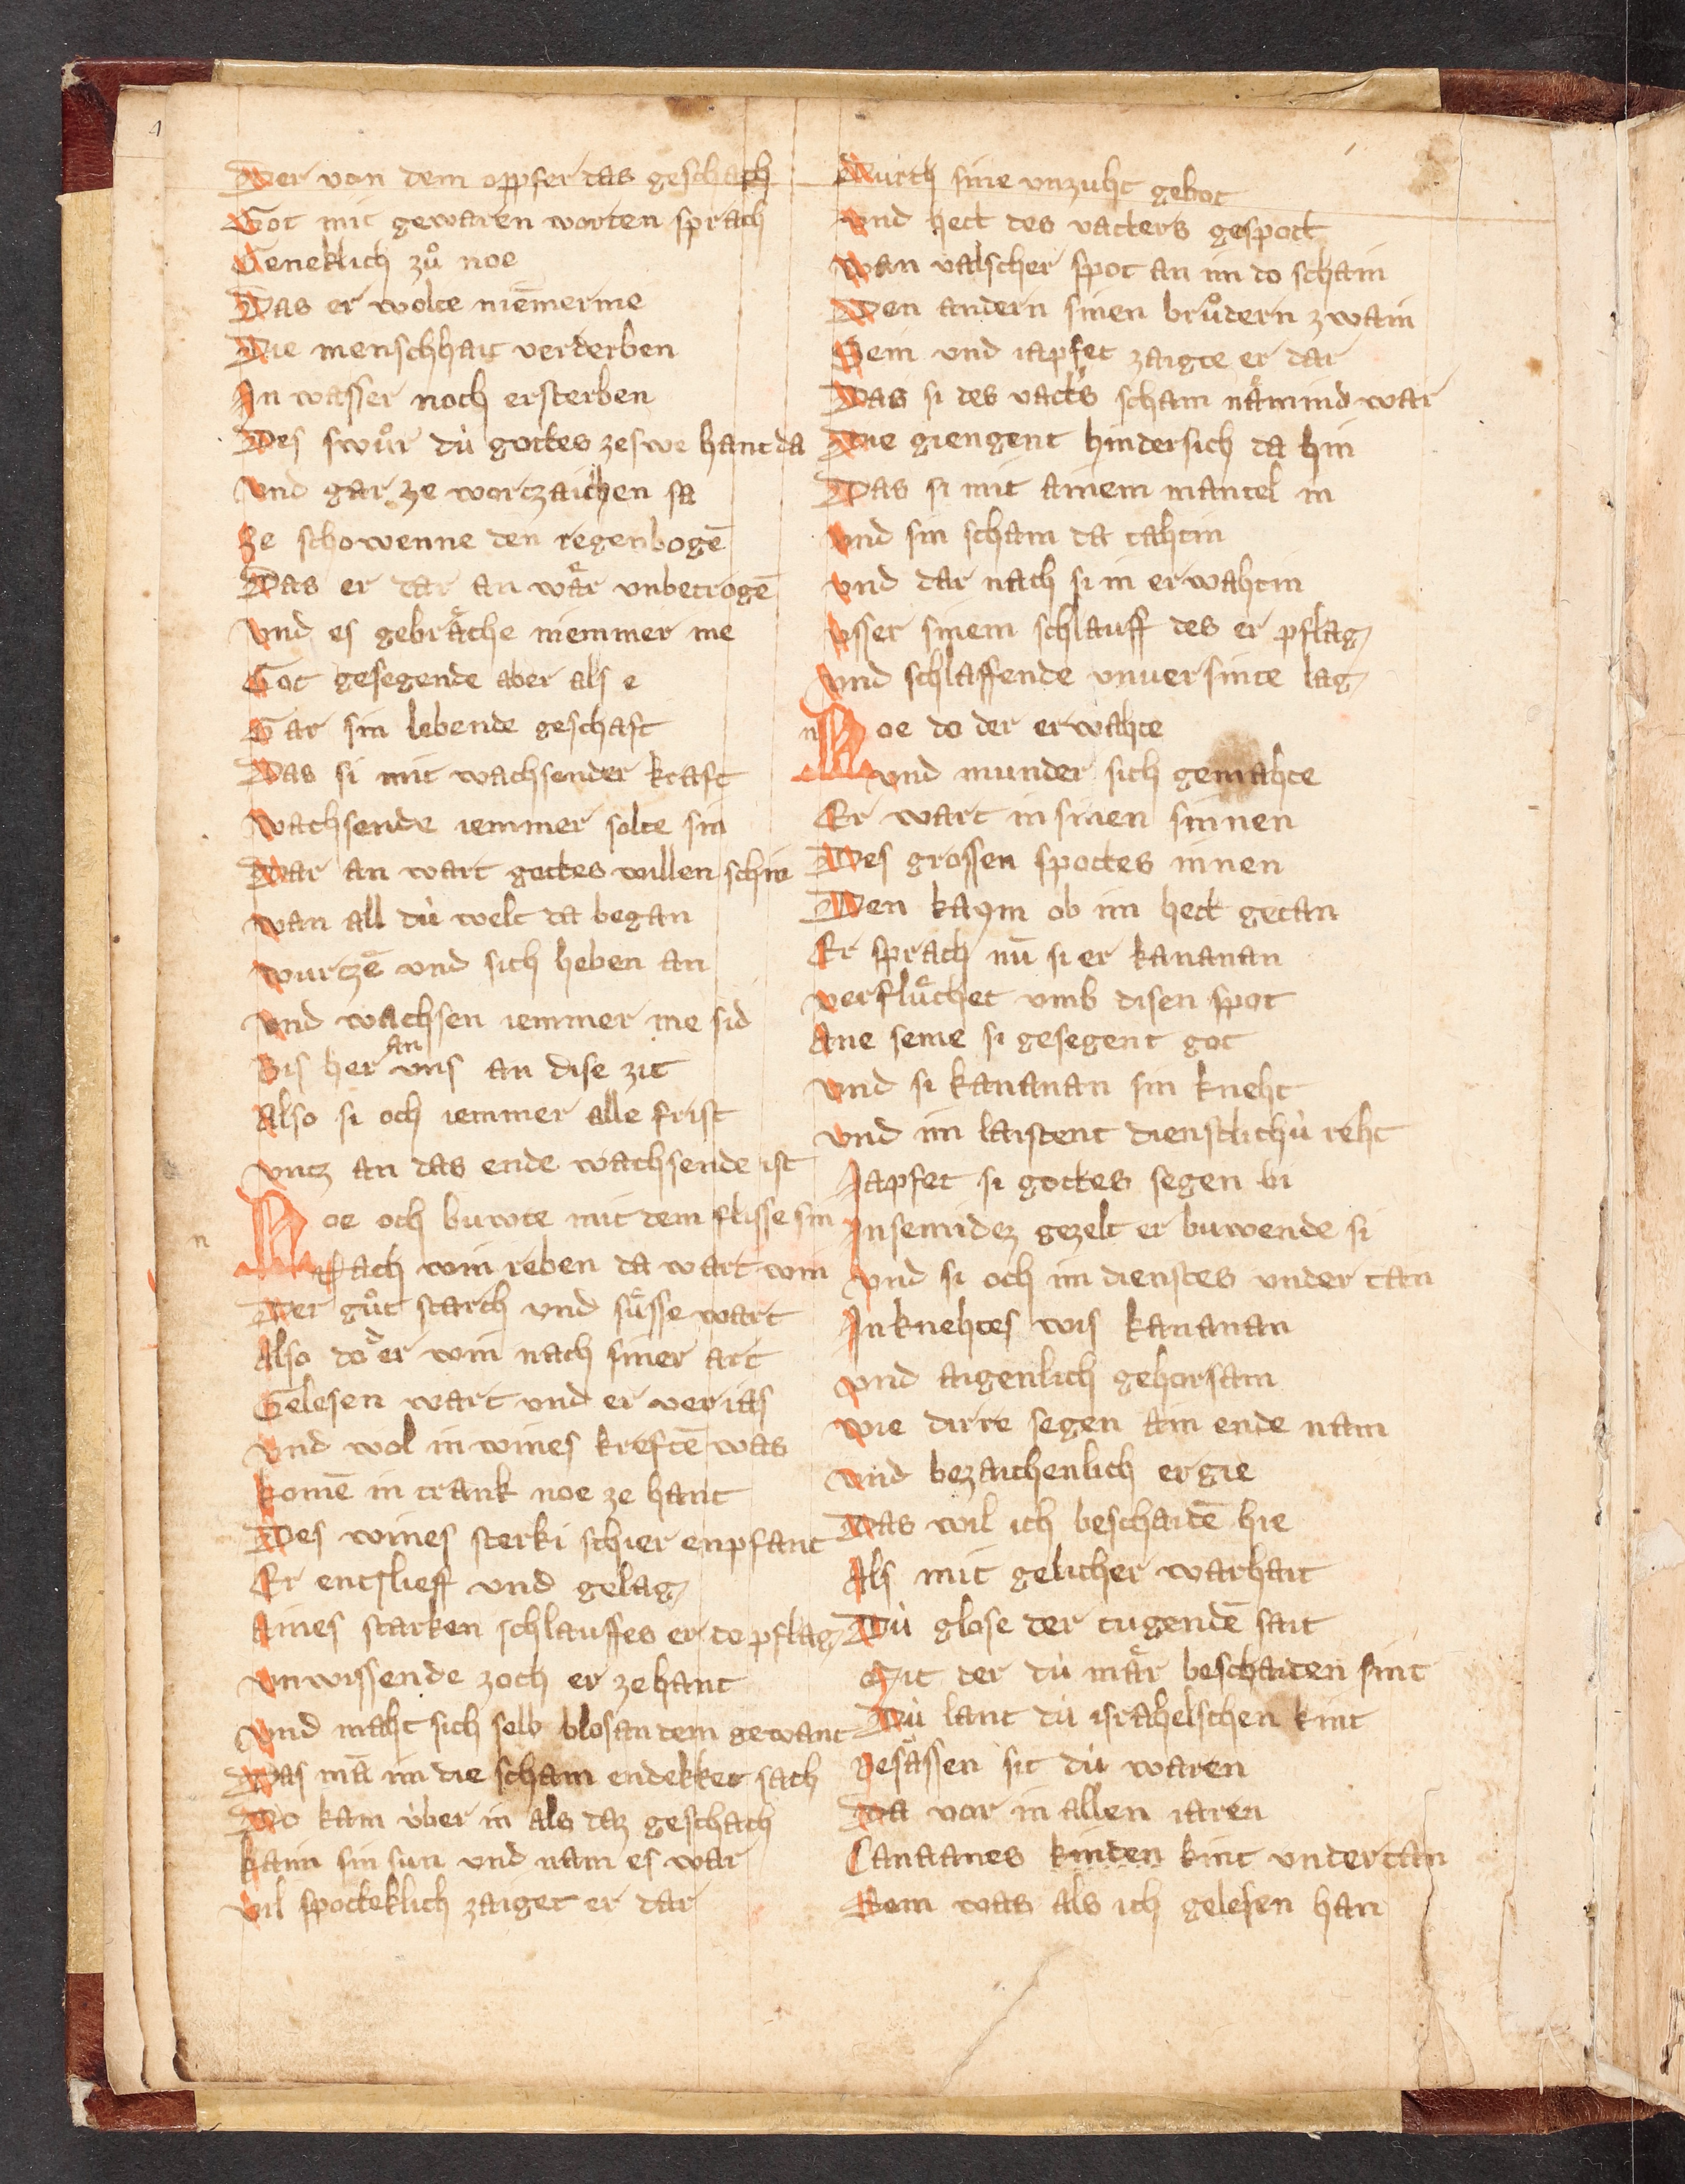 Der von dem oppfer das geschach
Got mit gewaren worten sprach
Geneklich zuͦ noe
Das er wolte niem̄er me
Die menschhait verderben
In wasser noch ersterben
Des swuͦr du̍ gottes zeswe hant da
Vnd gar ze wortzaichen sa
Ze schowenne den regenbogē
Das er dar an waͤr vnbetrogē
Vnd es gebraͤche niemmer me
Got gesegende aber als e
Gar sin lebende geschaft
Das si mit wachsender kraft
Wachsende iemmer solte sin
Dar an wart gottes willen schin
wan all du̍ welt da began
wurtzē vnd sich heben an
Vnd wachsen iemmer me sid
Bis her an vns an dise zit
Also si och iemmer alle frist
vntz an das ende wachsende ist
n
Noe och buwte mit dem flisse sin
Nach win reben da wart win
Der guͦt starch vnd suͤsse wart
Also do der win nach siner art
Gelesen wart vnd er verias
vnd wol in wines kreftē was
komē in trank noe ze hant
Des wines sterki schier enpfant
Er entslieff vnd gelag
Aines starken schlauffes er do pflag
vnwissende zoch er zehant
Vnd maht sich selb blos an dem gewant
Das mā im die scham endekket sach
Do kam v̍ber in als daz geschach
kam sin sun vnd nam es war
vil spotteklich zaiget er dar
Durch sine vnzuht gebot
Vnd hett des vatters gespott
wan valscher spot an im do schain
Den andern sinen bruͦdern zwain
Sem vnd iapfet zaigte er dar
Das si des vatt͛s scham naͤmind war
Die giengent hindersich da hin
Das si mit ainem mantel in
Vnd sin scham da tahtin
vnd dar nach si in erwahtin
vsser sinem schlauff des er pflag
Vnd schlaffende vnuersinte lag
n
Noe do der erwahte
vnd munder sich gemahte
Er wart in sinen sinnen
Des grossen spottes innen
Den kaym ob im hett getan
Er sprach nū si er kananan
verfluͤchet vmb disen spot
Ane seme si gesegent got
Vnd si kananan sin kneht
vnd im laistent dienstlichu̍ reht
Iapfet si gottes segen bi
In semi dez gezelt er buwende si
vnd si och im dienstes vnder tan
In knehtes wis kananan
vnd aigenlich gehorsam
wie dirre segen ain ende nam
vnd bezaichenlich ergie
Das wil ich beschaidē hie
Als mit gelicher warhait
Du̍ glose der tugendē sait
Mit der du̍ maͤr beschaiden sint
Du̍ lant du̍ israhelschen kint
Besaͤssen sit du̍ waren
Da vor in allen iaren
Canaanes kinden kint vndertan
Rom was als ich gelesen han